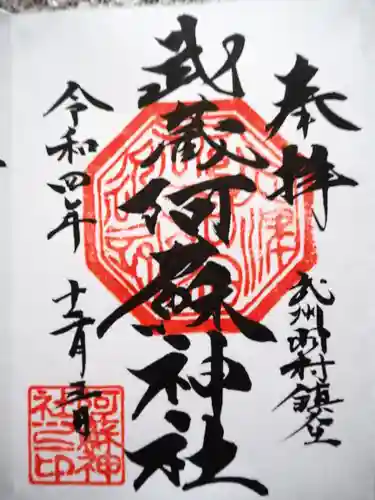 奉拝
武州野村鎮座
武蔵阿蘇神社
令和四年
十二月三日
阿蘇神
社之印